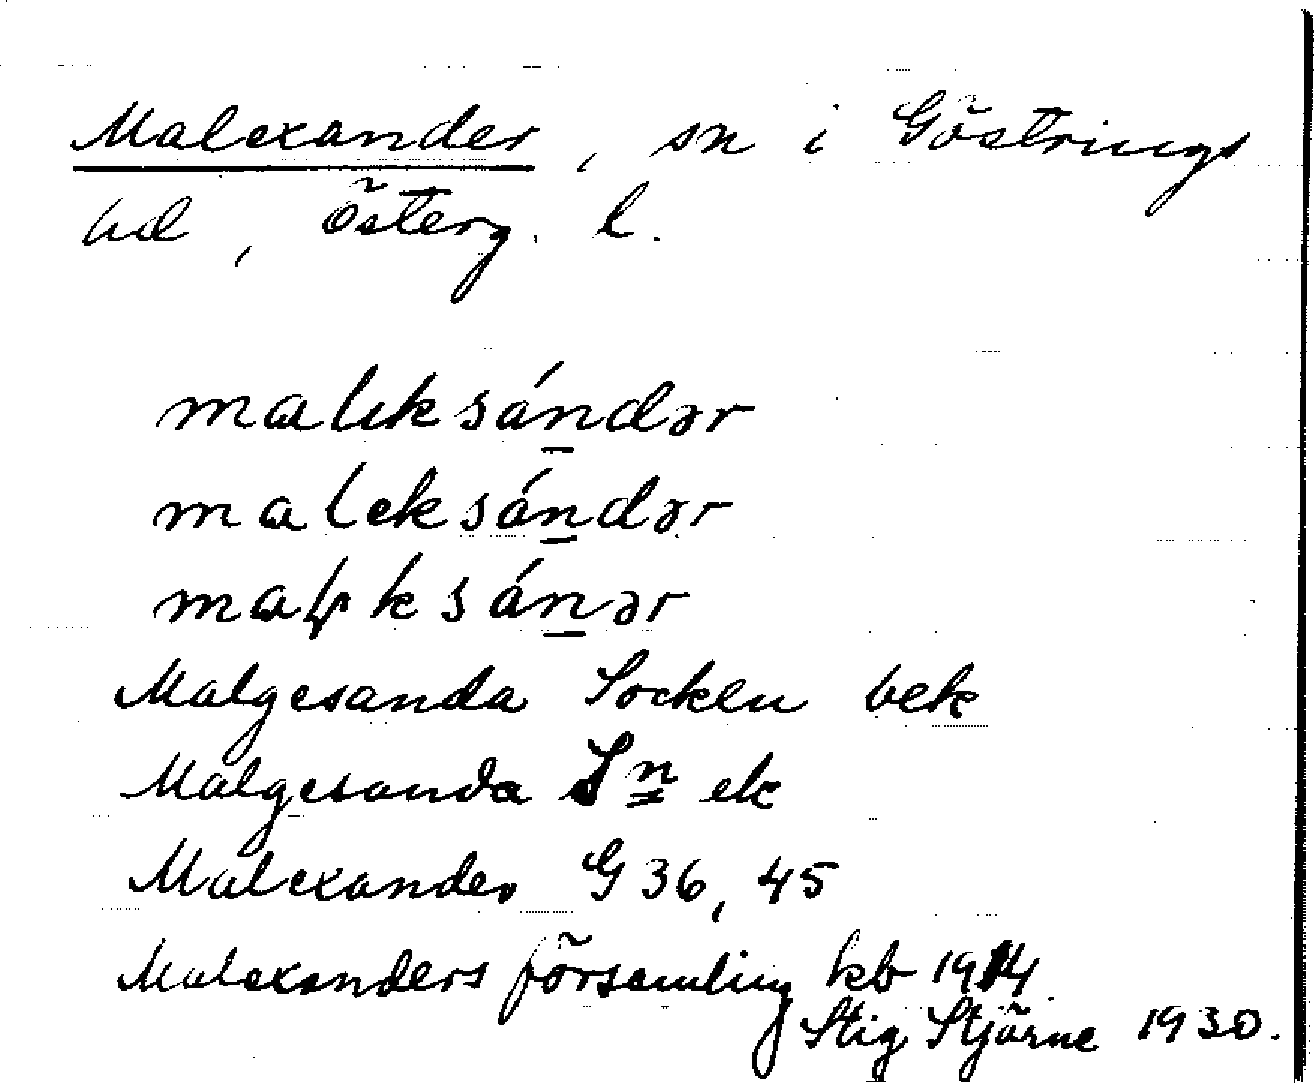 Malexander, sn i Göstrings
hd, Österg. l.
malıksándər
maleksándər
ksánər
Malgesanda Socken bek
Malgesanda Sn ek
Malexander G 36, 45
Malexanders församling kb 1914
Stig Stjärne 1930.